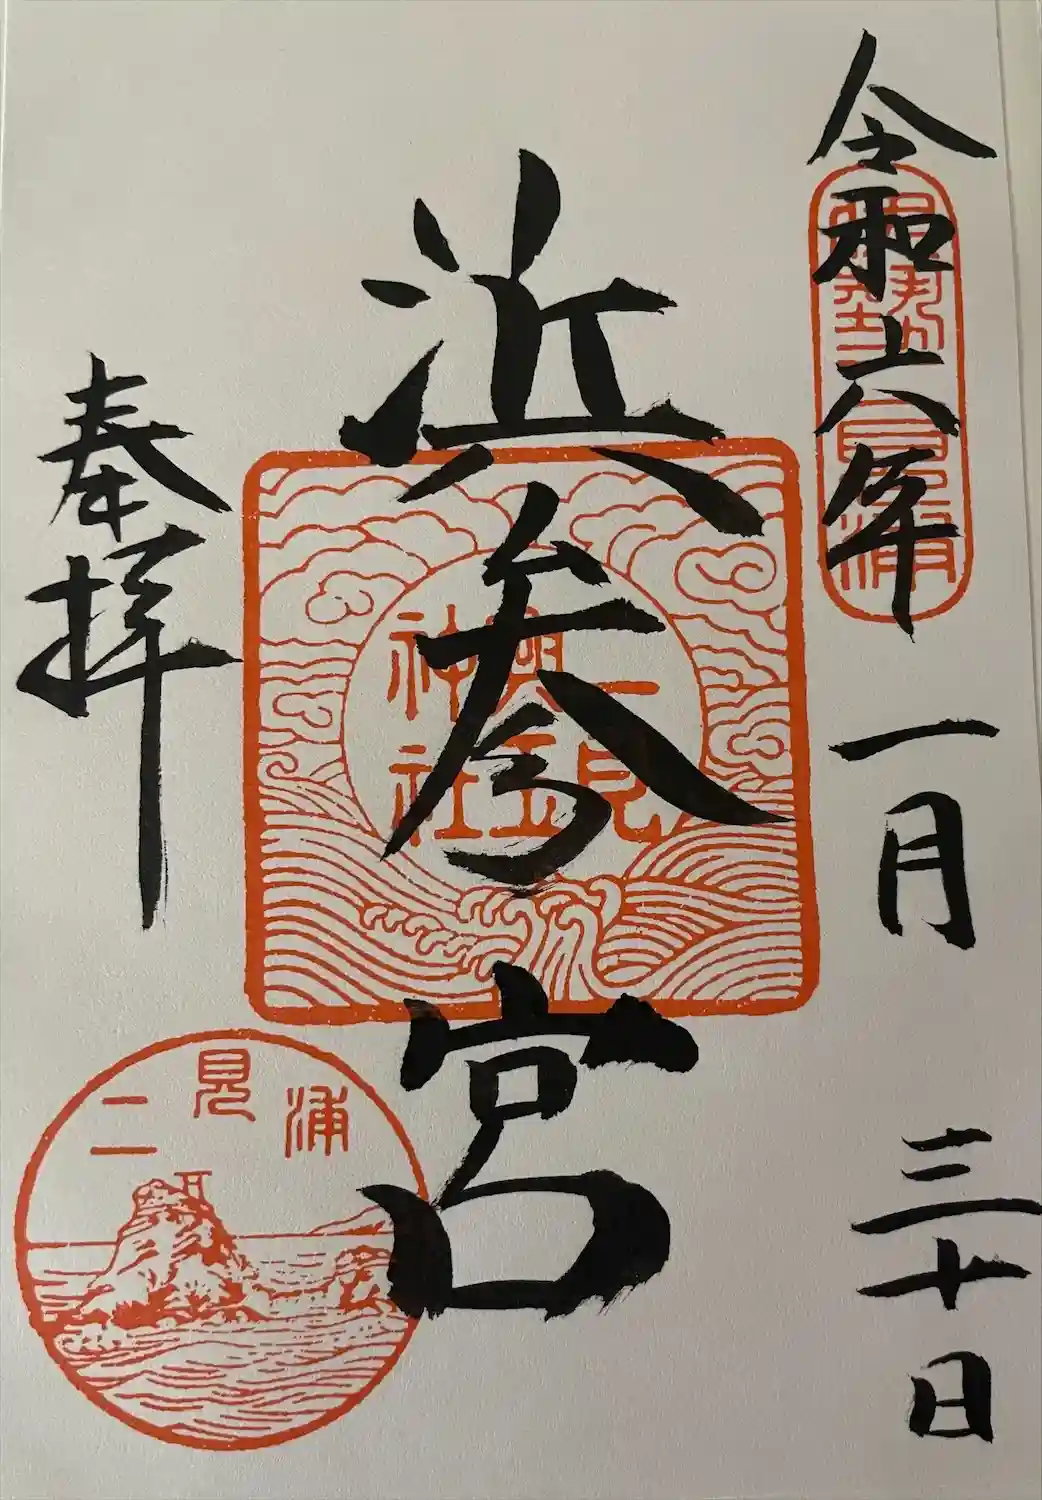 令和六年一月三十日
浜参宮
奉拝
二見
興玉
神社
二見浦